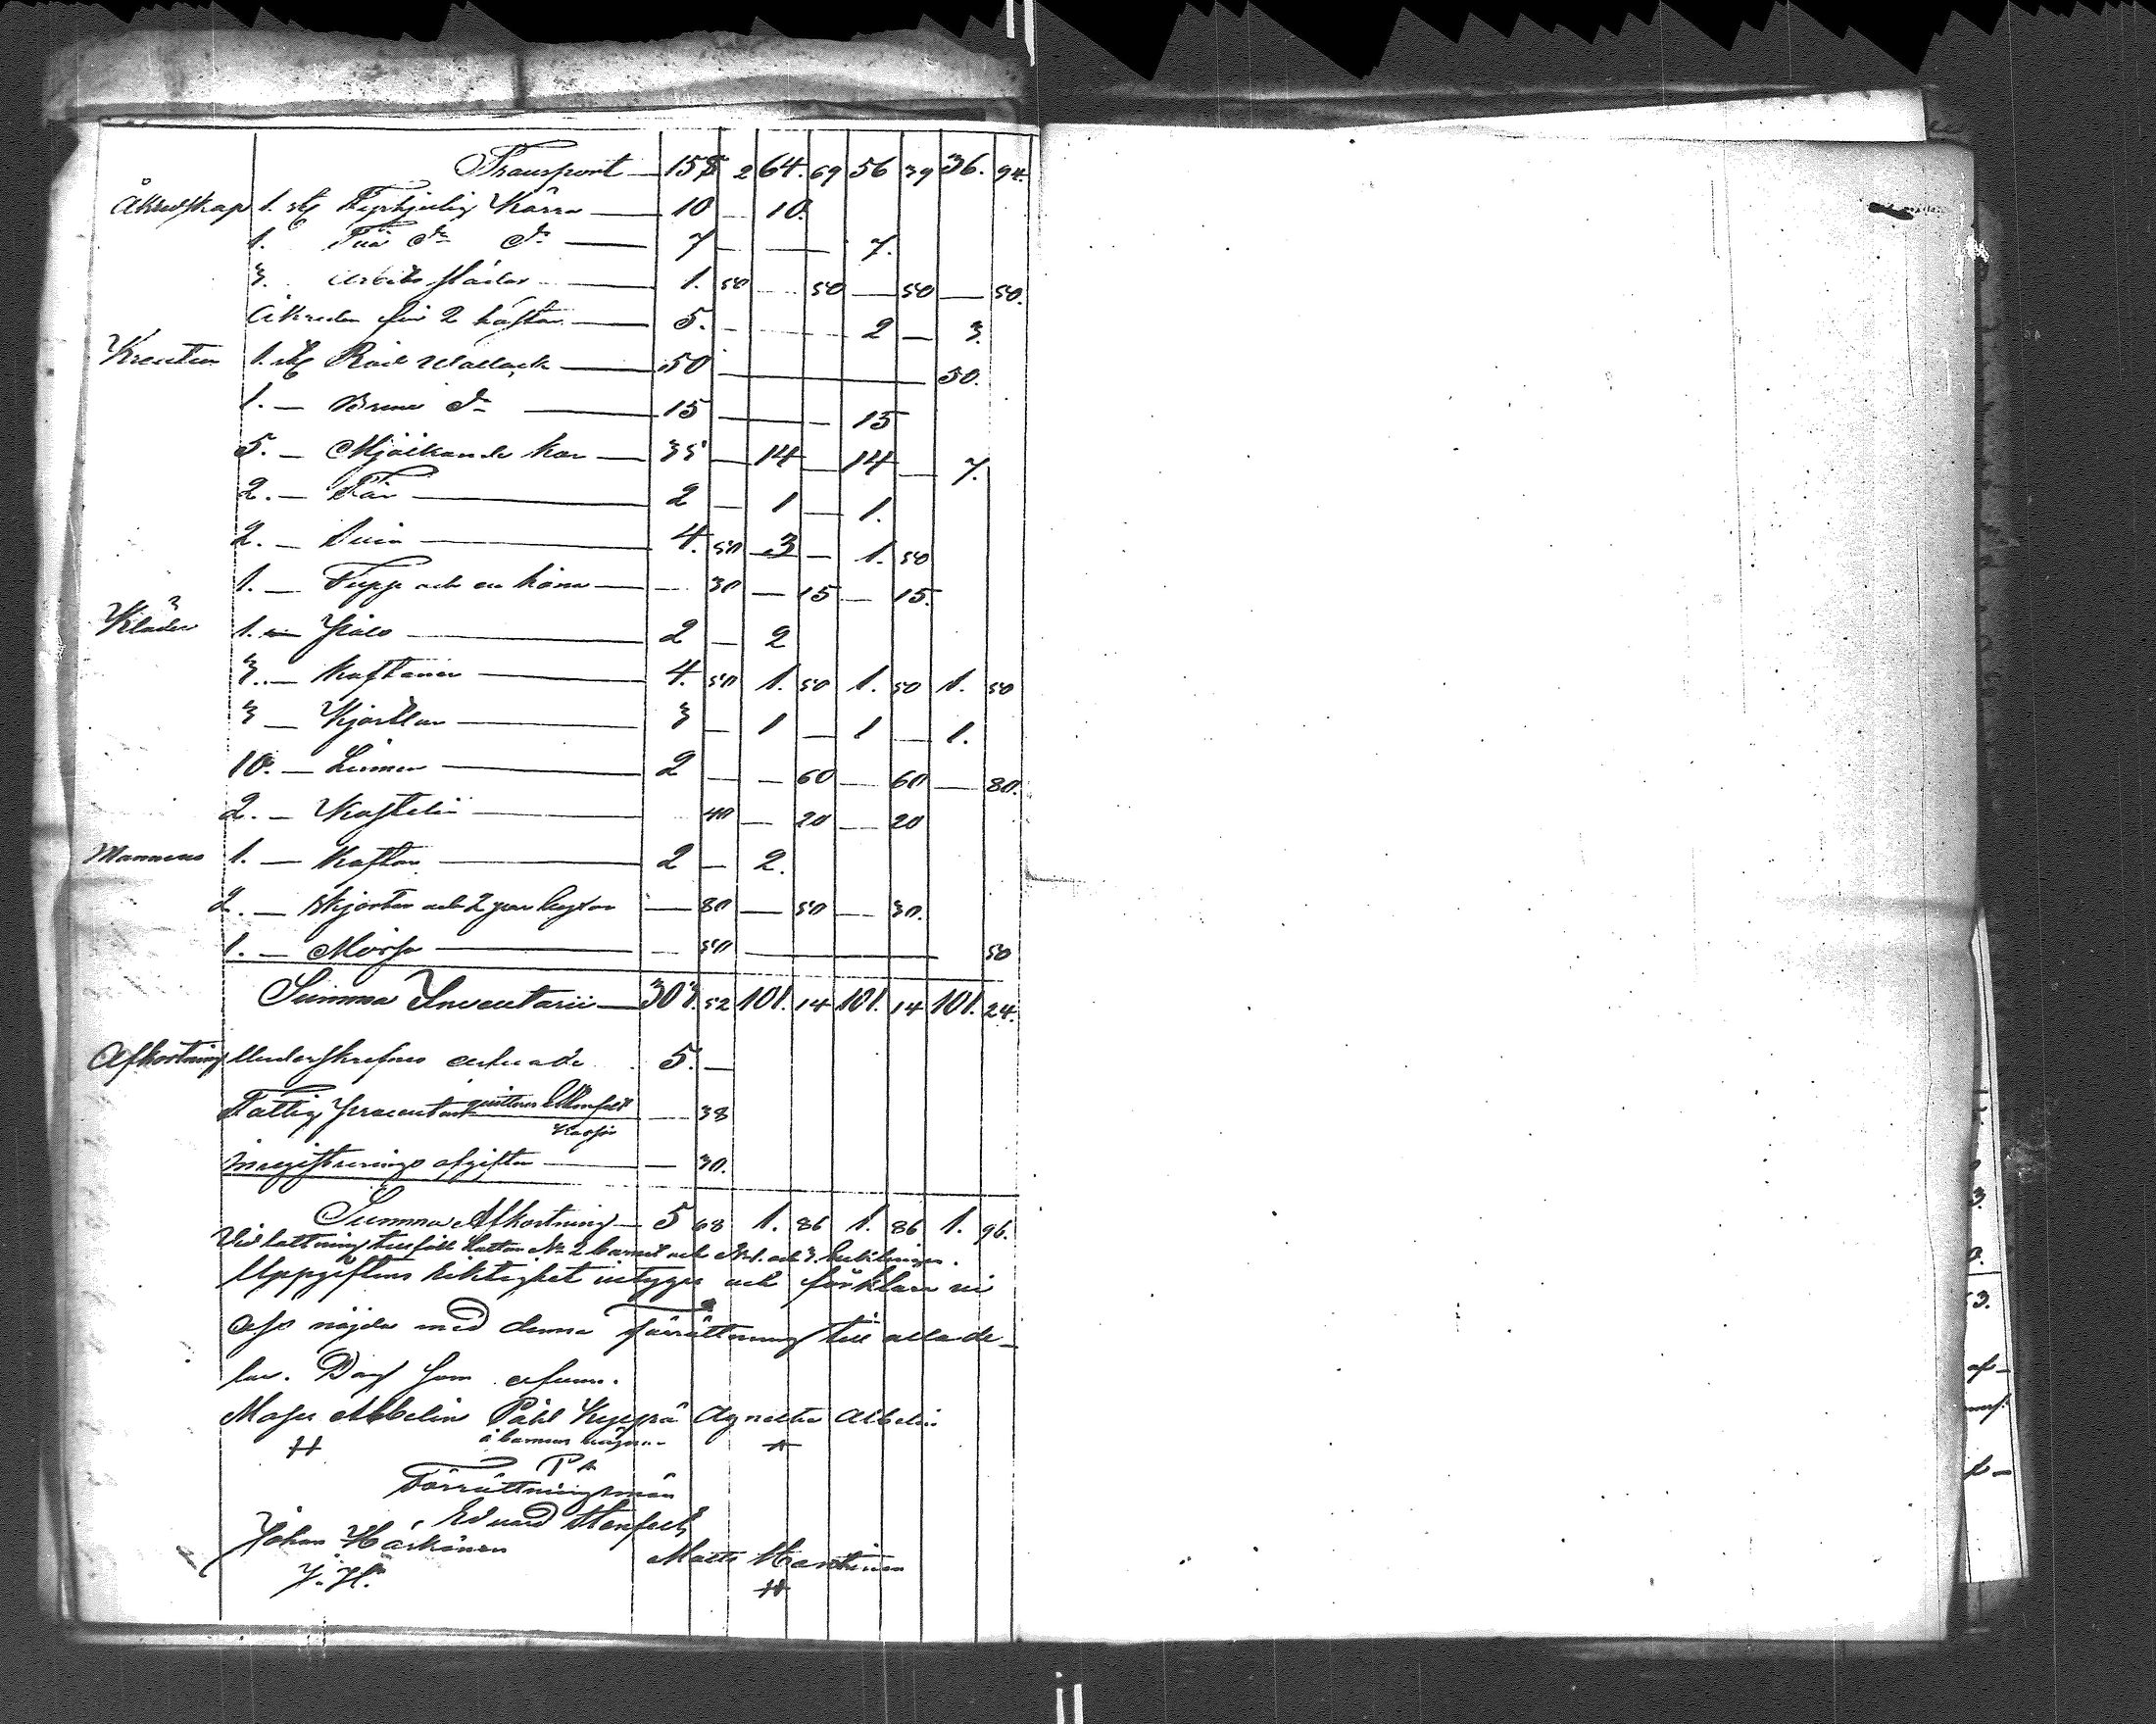 Transport — 158 2 64. 69 56 39 36. 94.
Åkredskap 1. st Fyrhjulig Kärra — 10 — 10.
1. Två do do — 7 — — 7.
3. arbets slädar — 1. 50 — 50 — 50 — 50.
Åkreden för 2 hästar — 5. — 2 — 3.
Kreatur 1. st Röd Wallack — 50 — 30.
1. — Brun do — 15 — — 15
5. — Mjölkande kor — 35 — 14 — 14 — 7.
2. — Får — 2 — 1 — 1.
2. — Svin — 4. 50 — 3 — 1. 50
1. — Tupp och en höna — — 30 — 15 — 15.
Kläder 1. — — 2 — 2
3. — Kaftaner — 4. 50 1. 50 1. 50 1. 50
3 — Kjortlar — 3 — 1 — 1 — 1.
10. — Linnen — 2 — — 60 — 60 — 80.
2. — — 40 — 20 — 20
Mannens 1. — Kaftan — 2 — 2.
2. — skjortor och 2 par byxor — 80 — 50 — 30.
1. — Mössa — — 50 — 50
Summa Inventarii — 303. 52 101. 14 101. 14 101. 24.
Afkortning Underskrefves arfvode 5. —
Fattig procenten — 38
Kassör
inregistrerings afgiften — — 30.
Summa Afkortning — 5 68 1. 86 1. 86 1. 96.
Vid lottning tillföll lotten No 2 barnet och No 1. och 3.
Uppgiftens riktighet intyga och förklara vi
oss nöjda med denna förrättning till alla de-
lar. Dag som ofvan.
Abbelin Påhl Kyyrä Agneta Abbelin
å barnens vägnar
P K
Förrättningsmän
Eduard Stenfelt
Johan Härkönen Matts Manninen
J. H.